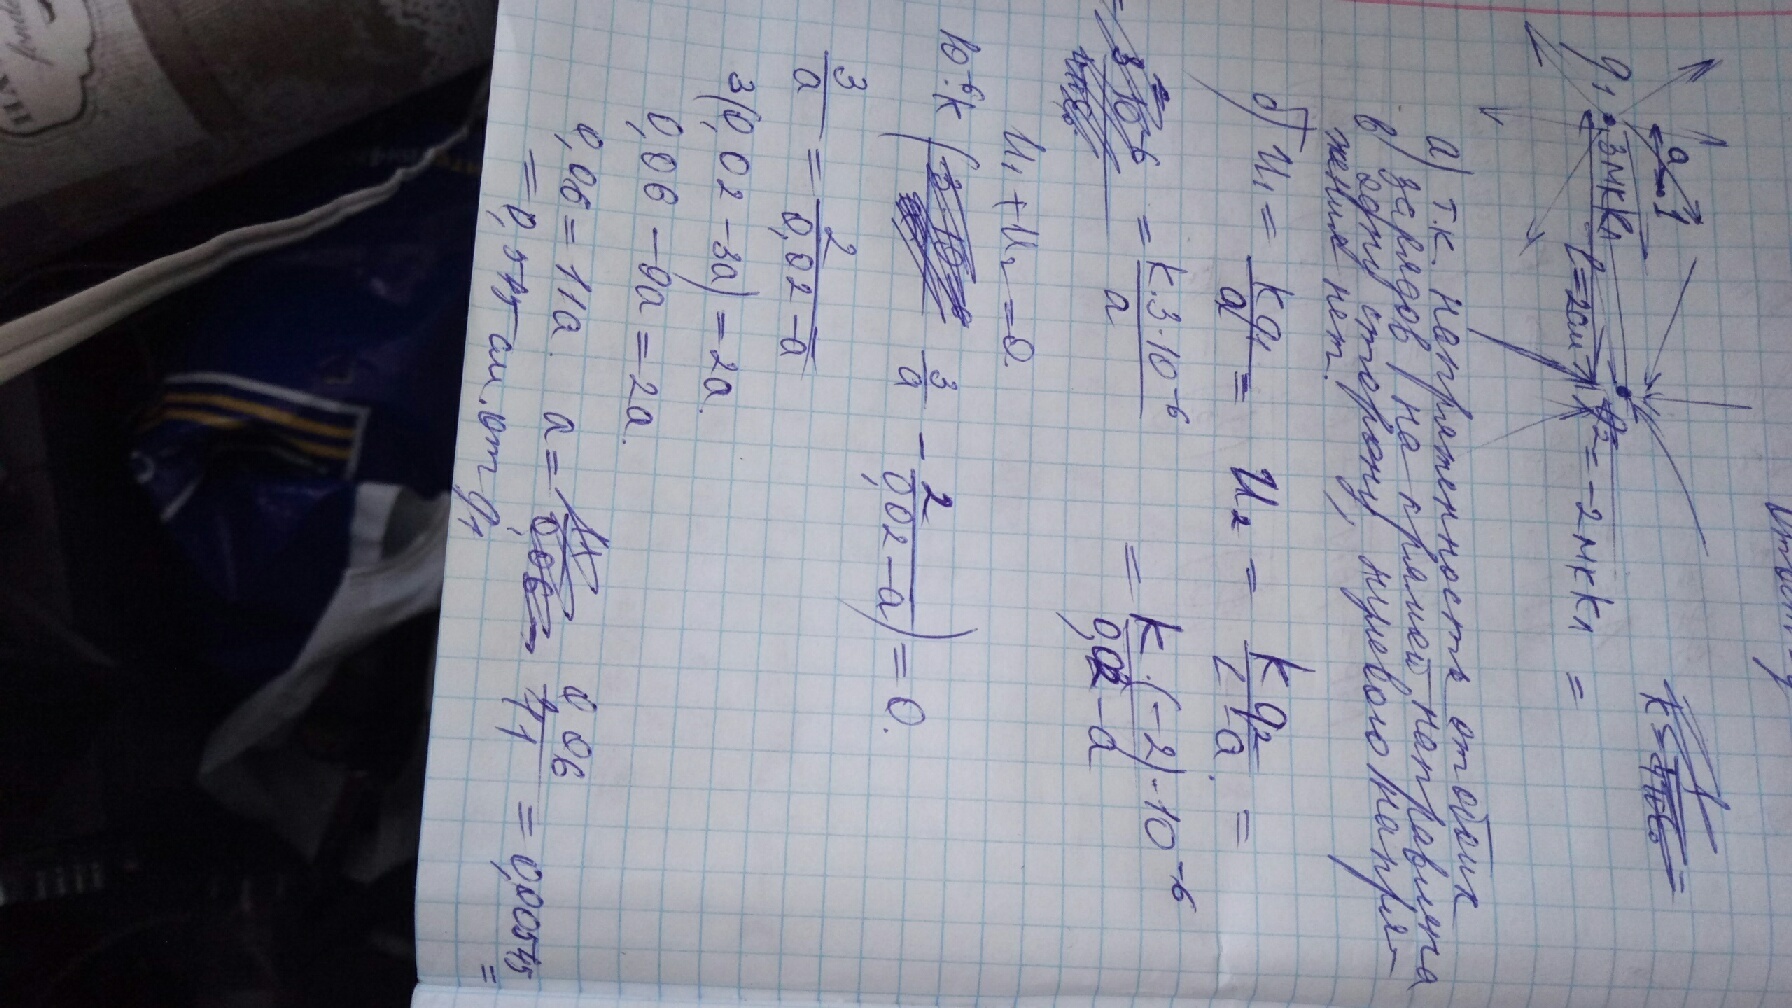 q₁ 3мкКл l=2см q₂=-2мкКл =
a
а) т.к. напряженность от обоих
зарядов (на прямой направлена
в одну сторону, нулевого напря-
жения нет.
б) U₁ = kq₁/a = U₂ = kq₂/(L-a) =
= k3·10⁻⁶/a = k·(-2)·10⁻⁶/(0,02-a)
U₁+U₂=0
10⁻⁶·k ( 3/a - 2/(0,02-a) ) = 0.
3/a = 2/(0,02-a)
3(0,02-3a)=2a.
0,06-9a=2a.
0,06=11a. a= 0,06/11 = 0,00545 =
= 0,545 см. от q₁